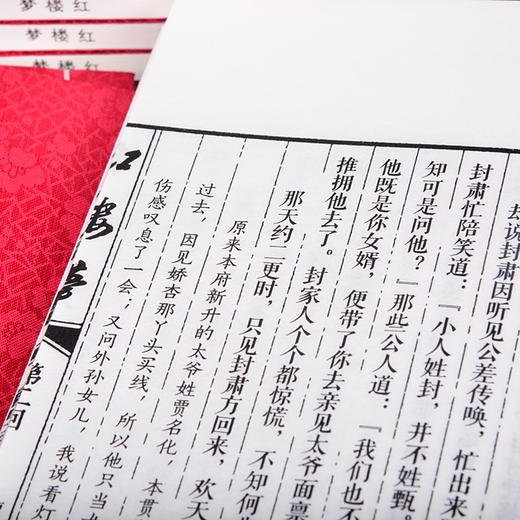 红楼梦
红楼梦
红楼梦
却说封肃因听见公差传唤，忙出来
封肃忙陪笑道：『小人姓封，并不姓甄。
知可是问他？』那些公人道：『我们也不
他既是你女婿，便带了你去亲见太爷面禀
推拥他去了。封家人个个都惊慌，不知何
那天约二更时，只见封肃方回来，欢天
原来本府新升的太爷姓贾名化，本贯
过去，因见娇杏那丫头买线，所以他只当
伤感叹息了一会，又问外孙女儿，我说看灯
红楼梦
第二回